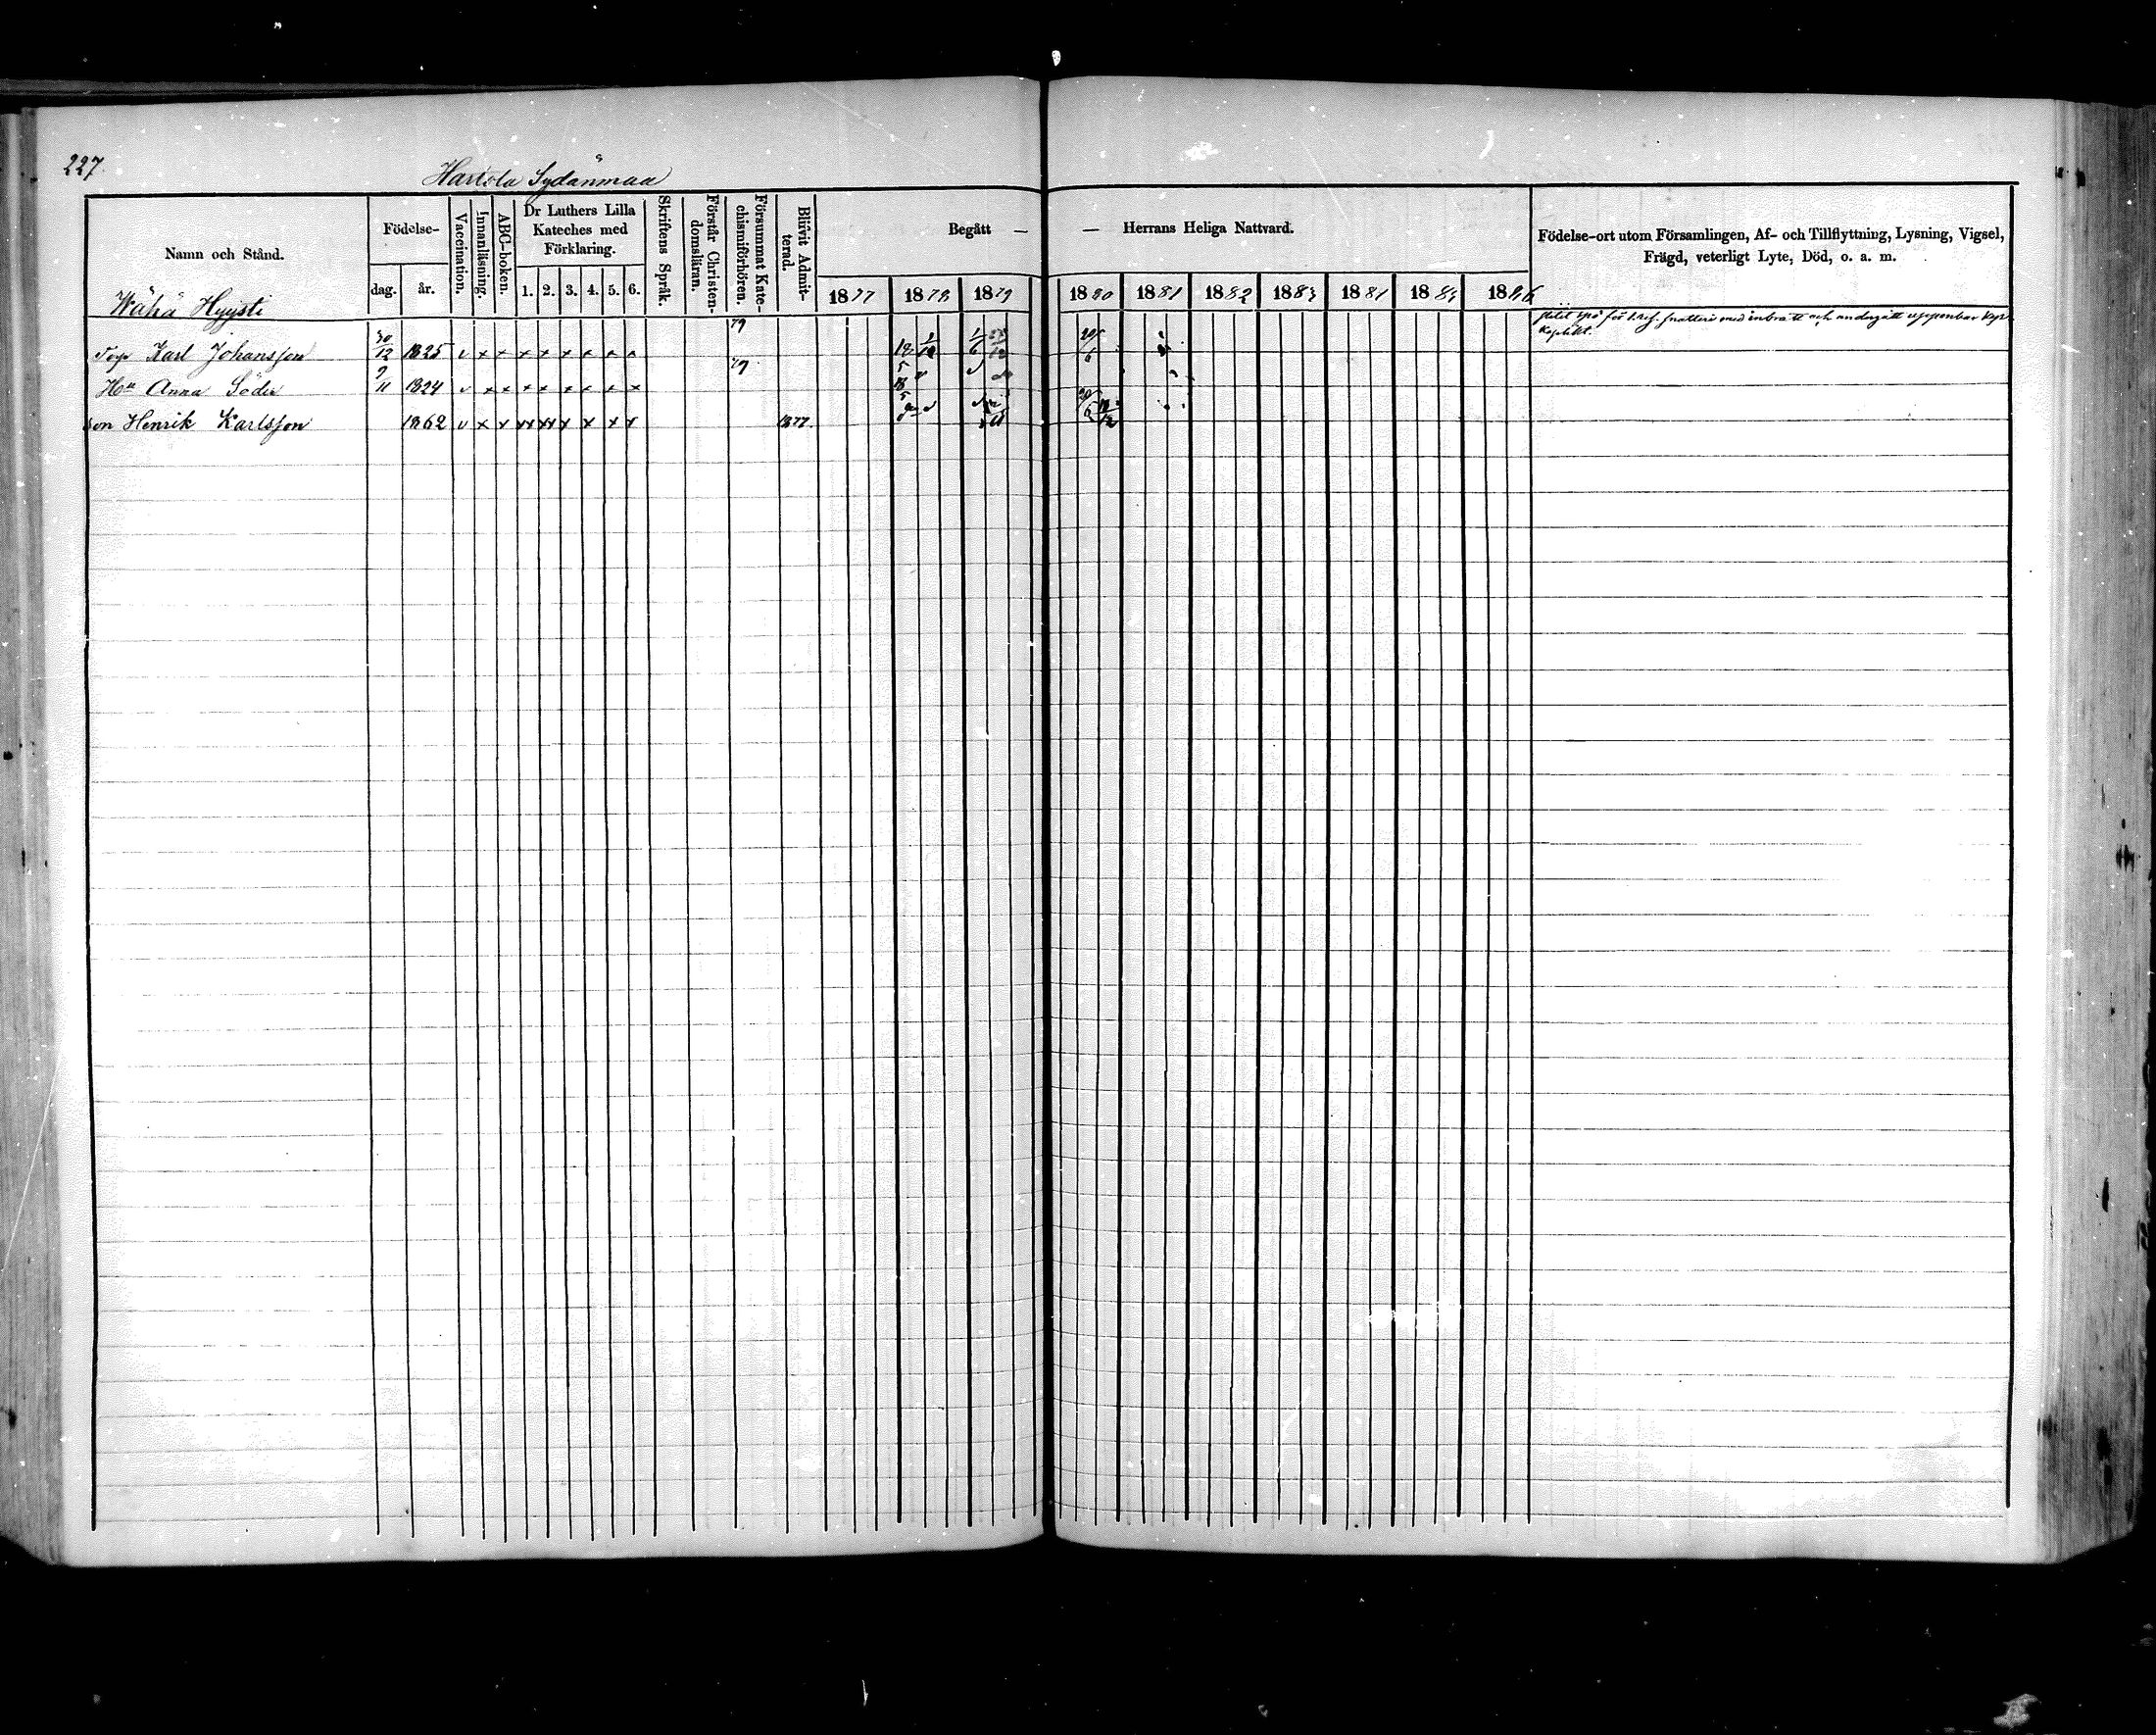 227.
Hartola Sydänmaa
Namn och Stånd.
Födelse-
dag.
år.
Vaccination.
Innanläsning.
ABC-boken.
Dr Luthers Lilla
Kateches med
Förklaring.
1. 2. 3. 4. 5. 6.
Skriftens Språk.
Förstår Christen-
domsläran.
Försummat Kate-
chismiförhören.
Blifvit Admit-
terad.
Begått —
— Herrans Heliga Nattvard.
1877 1878 1879 1880 1881 1882 1883 1881 188 1886
Födelse-ort utom Församlingen, Af- och Tillflyttning, Lysning, Vigsel,
Frägd, veterligt Lyte, Död, o. a. m.
Wähä Hyysti
Torp Karl Johansson 30/12 1825 v x x x x x x x x 79
Hu Anna Söder 9/11 1824 v x x x x x x x x 79
Son Henrik Karlsson 1862 v x x xx xx x x x x 1877.